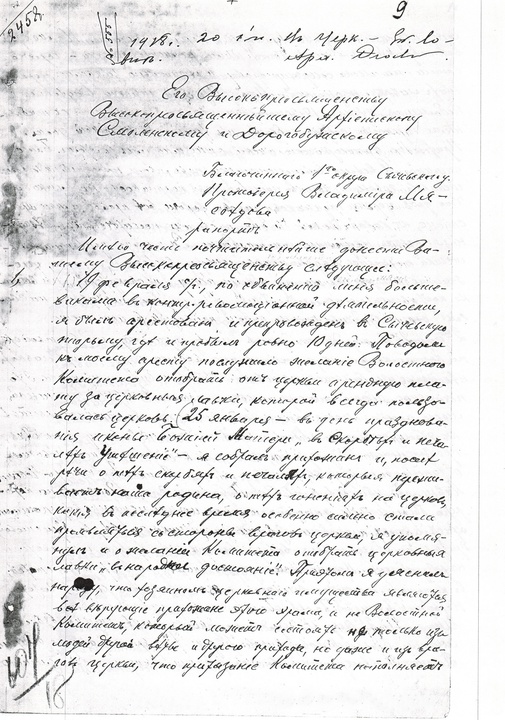 2458.
9
1918 г. 20
Его Высокопреосвященству
Высокопреосвященнѣйшему Архіепископу
Смоленскому и Дорогобужскому
Благочиннаго 1го округа Сычевскаго у.
Протоіерея Владиміра Мя-
соѣдова
рапортъ
Имѣю честь почтительнѣйше донести Ва-
шему Высокопреосвященству слѣдующее:
февраля с/г, по обвиненію меня больше-
виками въ контр-революціонной дѣятельности,
я былъ арестованъ и препровожденъ въ Сычевскую
тюрьму, гдѣ и пробылъ ровно 10 дней. Поводомъ
къ моему аресту послужило желаніе Волостного
Комитета отобрать отъ церкви арендную пла-
ту за церковныя лавки, которой всегда пользо-
валась церковь. 25 января – въ день празднова-
нія иконы Божіей Матери „въ скорбѣхъ и печа-
лѣхъ Утѣшеніе" – я собралъ прихожанъ и, послѣ
рѣчи о тѣхъ скорбяхъ и печаляхъ, которыя пережи-
ваетъ наша родина, о тѣхъ гоненіяхъ на церковь,
какія въ послѣднее время особенно сильно стали
проявляться со стороны враговъ церкви, я упомя-
нулъ и о желаніи Комитета отобрать церковныя
лавки „въ народное достояніе". Притомъ я разъяснилъ
народу, что хозяиномъ церковнаго имущества являются
всѣ вѣрующіе прихожане этого храма, а не Волостной
Комитетъ, который можетъ состоять не только изъ
людей другой вѣры и другого прихода, но даже и изъ вра-
говъ церкви, что приказаніе Комитета исполнять